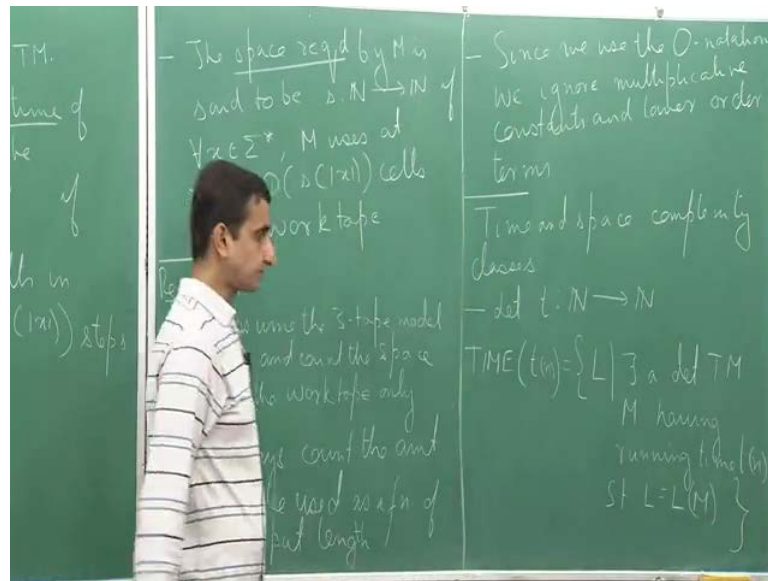 TM.
time of
he
if
lts in
(|x|)) steps
- The space reqd by M is
said to be s: N → N if
∀x ∈ Σ*, M uses at
O(s(|x|)) cells
work tape
Re
ume the 3-tape model
and count the space
he worktape only
ys count the amt
le used as a fn. of
put length
- Since we use the O-notation
we ignore multiplicative
constants and lower order
terms
Time and space complexity
classes
- Let t: N → N
TIME(t(n)) = { L | ∃ a det TM
M having
running time t(n)
st L = L(M) }